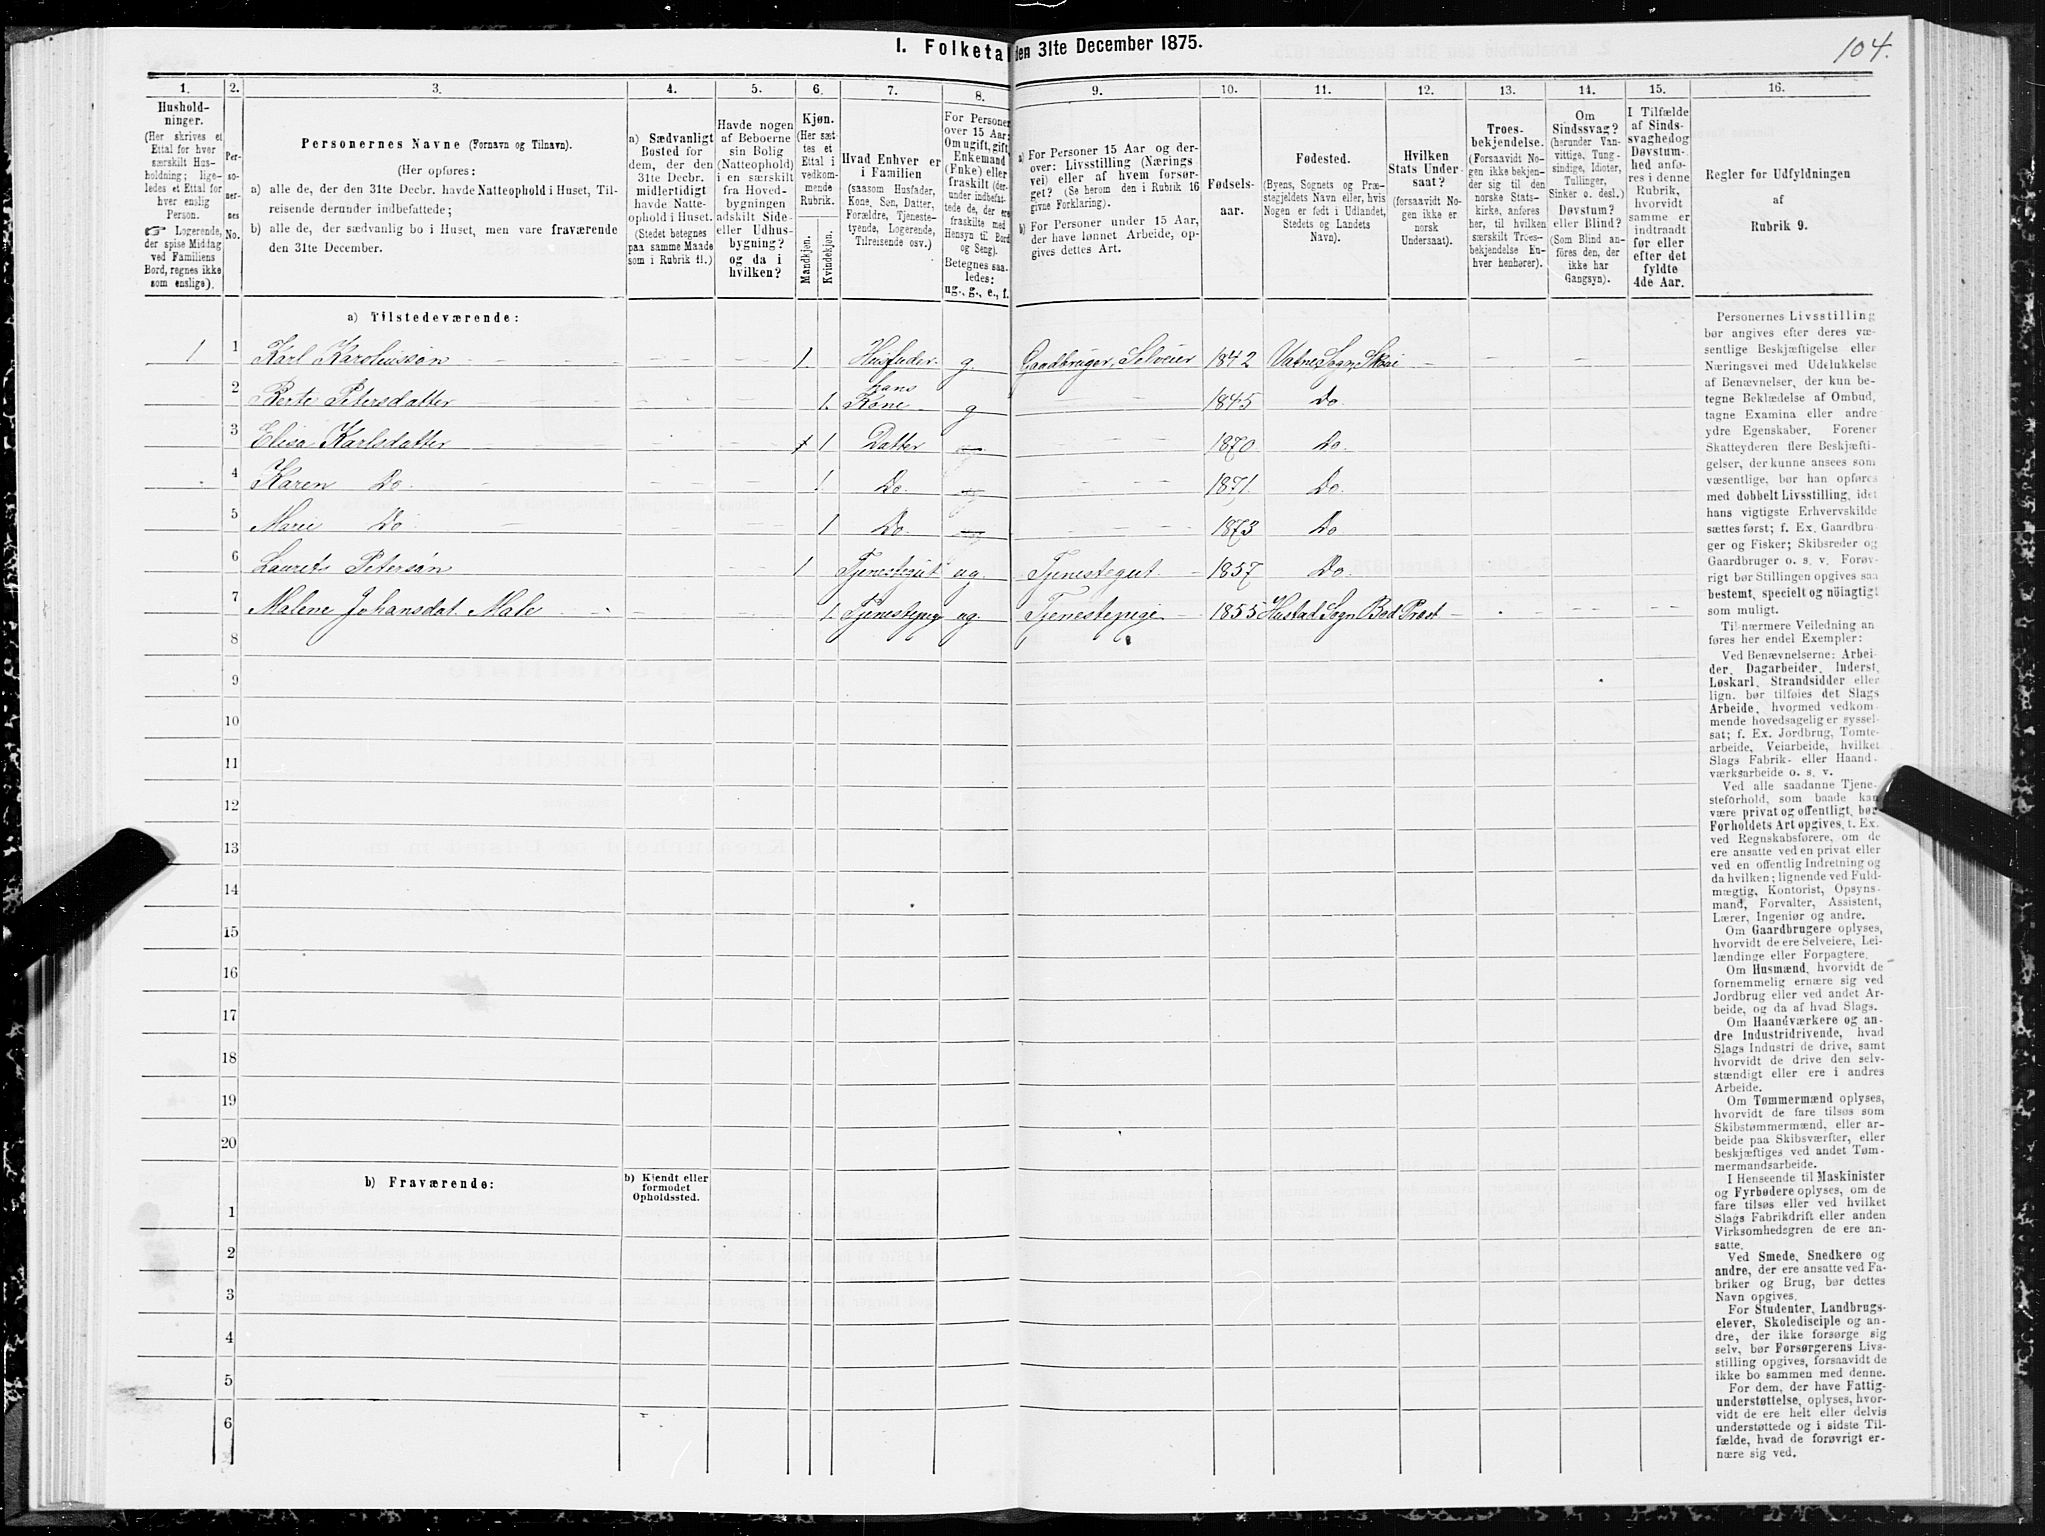 1. Folketal den 31te December 1875.
104.
1.
2.
3.
4.
5.
6.
7.
8.
9.
10.
11.
12.
13.
14.
15.
16.
Hushold-
ninger.
(Her skrives et
Ettal for hver
særskilt Hus-
holdning; lige-
ledes et Ettal for
hver enslig
Person.
☞ Logerende,
der spise Middag
ved Familiens
Bord, regnes ikke
som enslige).
Per-
so-
ner-
nes
No.
Personernes Navne (Fornavn og Tilnavn).
(Her opføres:
a) alle de, der den 31te Decbr. havde Natteophold i Huset, Til-
reisende derunder indbefattede;
b) alle de, der sædvanlig bo i Huset, men vare fraværende
den 31te December.
a) Sædvanligt
Bosted for
dem, der den
31te Decbr.
midlertidigt
havde Natte-
ophold i Huset.
(Stedet betegnes
paa samme Maade
som i Rubrik 11.)
Havde nogen
af Beboerne
sin Bolig
(Natteophold)
i en særskilt
fra Hoved-
bygningen
adskilt Side-
eller Udhus-
bygning?
og da i
hvilken?
Kjøn.
(Her sæt-
tes et
Ettal i
vedkom-
mende
Rubrik.
Mandkjøn.
Kvindekjøn.
Hvad Enhver er
i Familien
(saasom Husfader,
Kone, Søn, Datter,
Forældre, Tjeneste-
tyende, Logerende,
Tilreisende osv.)
For Personer
over 15 Aar:
Om ugift, gift,
Enkemand
(Enke) eller
fraskilt (der-
under indbefat-
tede de, der ere
fraskilte med
Hensyn til Bord
og Seng).
Betegnes saa-
ledes:
ug., g., e., f.
a) For Personer 15 Aar og der-
over: Livsstilling (Nærings-
vei) eller af hvem forsør-
get? (Se herom den i Rubrik 16
givne Forklaring).
b) For Personer under 15 Aar,
der have lønnet Arbeide, op-
gives dettes Art.
Fødsels-
aar.
Fødested.
(Byens, Sognets og Præ-
stegjeldets Navn eller, hvis
Nogen er født i Udlandet,
Stedets og Landets
Navn).
Hvilken
Stats Under-
saat?
(forsaavidt No-
gen ikke er
norsk
Undersaat).
Troes-
bekjendelse.
(Forsaavidt No-
gen ikke bekjen-
der sig til den
norske Stats-
kirke, anføres
her, til hvilken
særskilt Troes-
bekjendelse En-
hver henhører).
Om
Sindssvag?
(herunder Van-
vittige, Tung-
sindige, Idioter,
Tullinger,
Sinker o. desl.)
Døvstum?
eller Blind?
(Som Blind an-
føres den, der
ikke har
Gangsyn).
I Tilfælde
af Sinds-
svaghedog
Døvstum-
hed anfø-
res i denne
Rubrik,
hvorvidt
samme er
indtraadt
før eller
efter det
fyldte
4de Aar.
Regler for Udfyldningen
af
Rubrik 9.
a) Tilstedeværende:
1 1 Karl Karolussøn 1. Husfader g. Gaardbruger, Selveier 1842 Vatne Sogn, Skai
2 Berte Petersdatter 1. hans Kone g 1845 Do.
3 Elisa Karlsdatter 1 Datter 1870 Do.
4 Karen Do. 1 Do. 1871. Do.
5 Marie Do 1 Do 1873 Do
6 Laurits Petersøn 1 Tjenestegut ug. Tjenestegut 1857 Do.
7 Malene Johansdat Male 1. Tjenestepige ug. Tjenestepige 1855 Hustad Sogn Bod Præst
8
9
10
11
12
13
14
15
16
17
18
19
20
b) Fraværende:
b) Kjendt eller
formodet
Opholdssted.
1
2
3
4
5
6
Personernes Livsstilling
bør angives efter deres væ-
sentlige Beskjæftigelse eller
Næringsvei med Udelukkelse
af Benævnelser, der kun be-
tegne Beklædelse af Ombud,
tagne Examina eller andre
ydre Egenskaber. Forener
Skatteyderen flere Beskjæfti-
gelser, der kunne ansees som
væsentlige, bør han opføres
med dobbelt Livsstilling, idet
hans vigtigste Erhvervskilde
sættes først; f. Ex. Gaardbru-
ger og Fisker; Skibsreder og
Gaardbruger o. s. v. Forøv-
rigt bør Stillingen opgives saa
bestemt, specielt og nøiagtigt
som muligt.
Til nærmere Veiledning an
føres her endel Exempler:
Ved Benævnelserne: Arbei-
der, Dagarbeider, Inderst,
Løskarl, Strandsidder eller
lign. bør tilføies det Slags
Arbeide, hvormed vedkom-
mende hovedsagelig er syssel-
sat; f. Ex. Jordbrug, Tomte-
arbeide, Veiarbeide, hvilket
Slags Fabrik- eller Haand-
værksarbeide o. s. v.
Ved alle saadanne Tjene-
steforhold, som baade kan
være privat og offentligt, bør
Forholdets Art opgives, f. Ex.
ved Regnskabsførere, om de
ere ansatte ved en privat eller
ved en offentlig Indretning og
da hvilken; lignende ved Fuld-
mægtig, Kontorist, Opsyns-
mand, Forvalter, Assistent,
Lærer, Ingeniør og andre.
Om Gaardbrugere oplyses,
hvorvidt de ere Selveiere, Lei-
lændinge eller Forpagtere.
Om Husmænd, hvorvidt de
fornemmelig ernære sig ved
Jordbrug eller ved andet Ar-
beide, og da af hvad Slags.
Om Haandværkere og an-
dre Industridrivende, hvad
Slags Industri de drive, samt
hvorvidt de drive den selv-
stændigt eller ere i andres
Arbeide.
Om Tømmermænd oplyses,
hvorvidt de fare tilsøs som
Skibstømmermænd, eller ar-
beide paa Skibsværfter, eller
beskjæftiges ved andet Tøm-
mermandsarbeide.
I Henseende til Maskinister
og Fyrbødere oplyses, om de
fare tilsøs eller ved hvilket
Slags Fabrikdrift eller anden
Virksomhedsgren de ere an-
satte.
Ved Smede, Snedkere og
andre, der ere ansatte ved Fa-
briker og Brug, bør dettes
Navn opgives.
For Studenter, Landbrugs-
elever, Skoledisciple og an-
dre, der ikke forsørge sig
selv, bør Forsørgerens Livs-
stilling opgives, forsaavidt de
ikke bo sammen med denne.
For dem, der have Fattig-
understøttelse, oplyses, hvor-
vidt de ere helt eller delvis
understøttede og i sidste Til-
fælde, hvad de forøvrigt er-
nære sig ved.